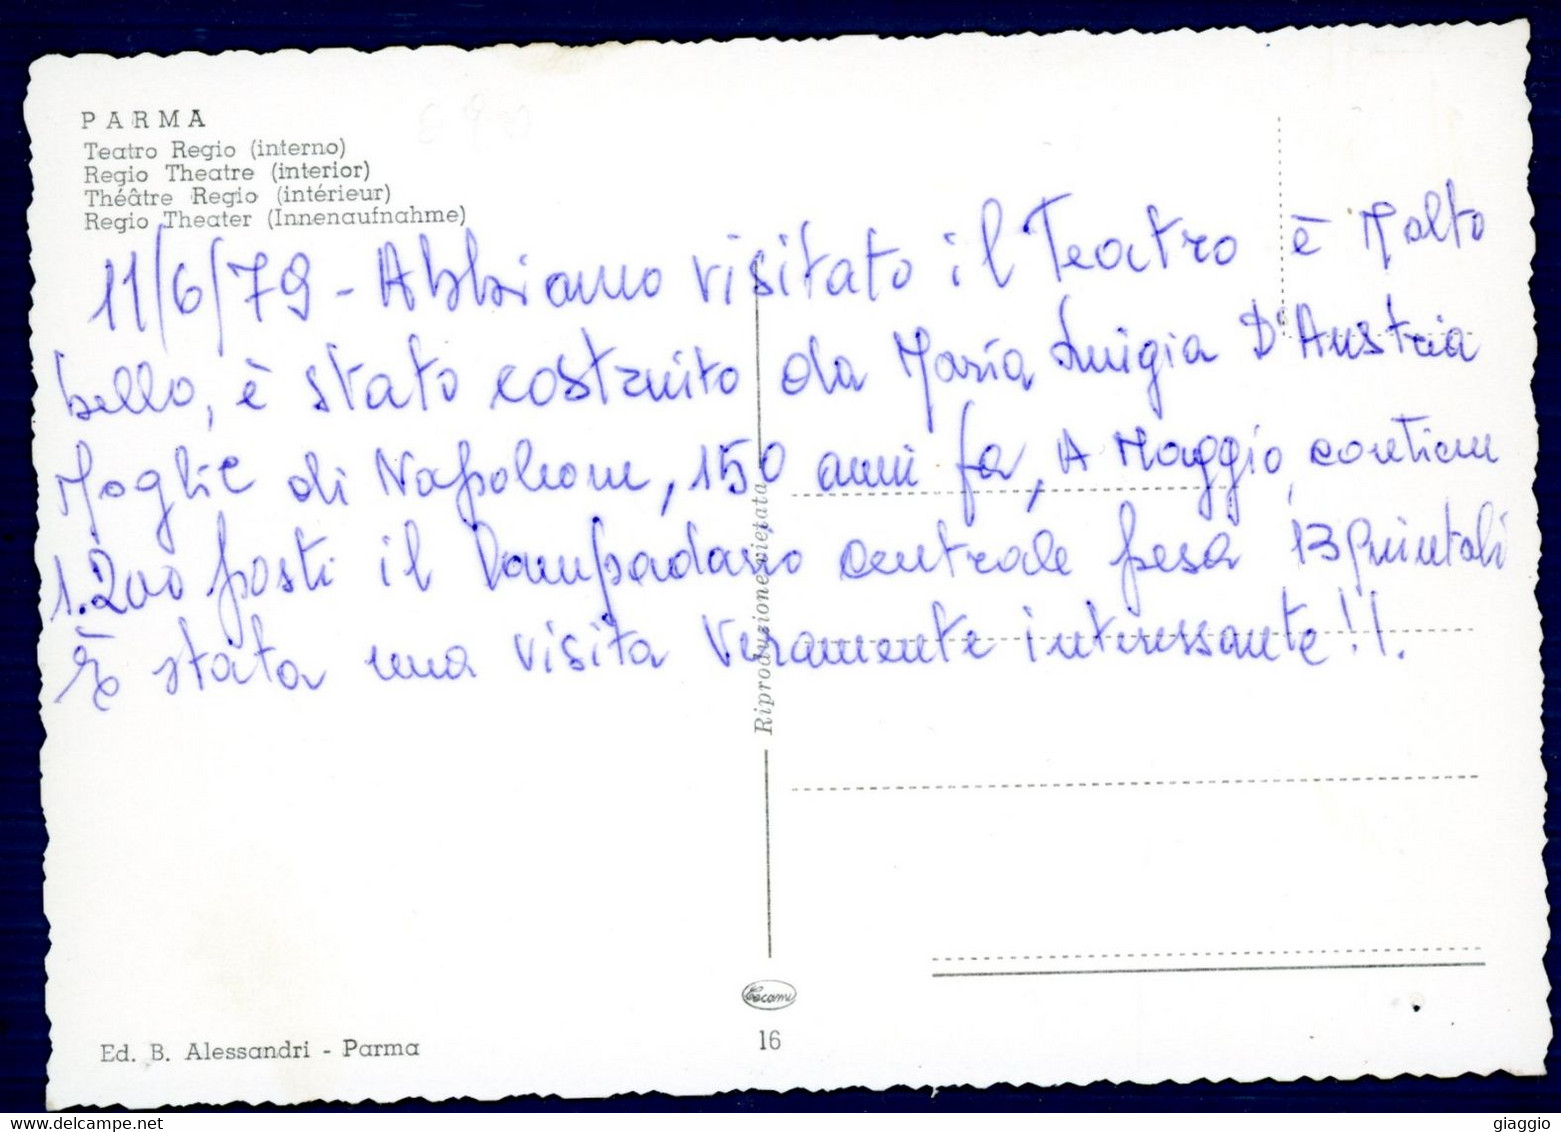 PARMA
Teatro Regio (interno)
Regio Theatre (interior)
Théâtre Regio (intérieur)
Regio Theater (Innenaufnahme)
11/6/79 - Abbiamo visitato il Teatro è Molto
bello, è stato costruito da Maria Luigia D'Austria
Moglie di Napoleone, 150 anni fa, A Maggio, contiene
1.200 posti il Lampadario centrale pesa 13 quintali
È stata una visita veramente interessante!!.
Riproduzione vietata
Cecami
16
Ed. B. Alessandri - Parma
delcampe.net
giaggio